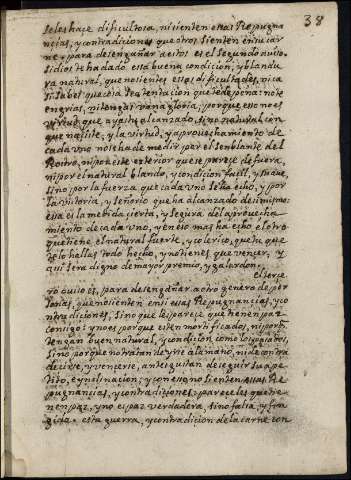 38
seles haze dificultosa, ni sienten estas Repugna
ncias, y contradiciones que otros sienten en su car
ne: para desengañar a estos es el segundo auiso.
si dios te ha dado essa buena condicion, y blandu
ra natural, que no sientes essas dificultades, ni ca
si sabes que cosa sea tentacion que te de pena: no te
engrias, ni tengas vana gloria; porque esso no es
virtud que ayas tu alcanzado, sino natural con
que naciste, y la virtud, y aprouechamiento de
cada uno no se ha de medir por el semblante del
Rostro, ni por este exterior que se parece de fuera,
ni por el natural blando, y condicion facil, y suaue,
sino por la fuerza que cada uno se ha echo, y por
la vitoria, y señorio que ha alcanzado de si mismo:
essa es la medida cierta, y segura del aprouecha
miento de cada uno, y en esso mas ha echo el otro
que tiene el natural fuerte, y colerico, que tu que
te lo hallas todo hecho, y no tienes que vencer, y
assi sera digno de mayor premio, y galardon.
El terce
ro auiso es, para desengañar a otro genero de per
sonas, que no sienten en si essas Repugnancias, y co
ntradiciones, sino que les parece que tienen paz
consigo: y no es porque esten mortificados, ni porq
tengan buen natural, y condicion como los passados,
sino porque no tratan de yrse a la mano, ni de contra
decirse, y vencerse, antes quitan de seguir su ape
tito, e ynclinacion; y con esso no sienten essas Re
pugnancias, y contradiziones: pareceles que tie
nen paz, y no es paz verdadera, sino falsa, y fin
gida. esta guerra, y contradicion de la carne con